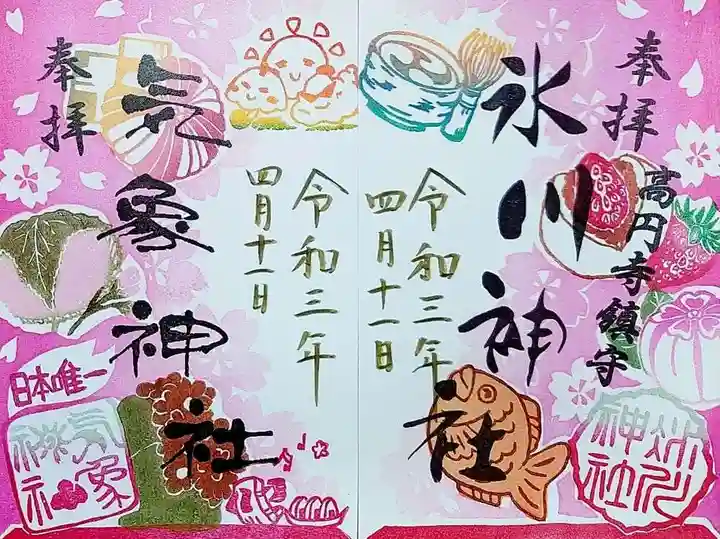 奉拝
高円寺鎮守
氷川神社
令和三年
四月十一日
氷川神社
奉拝
気象神社
令和三年
四月十一日
日本唯一
気象神社